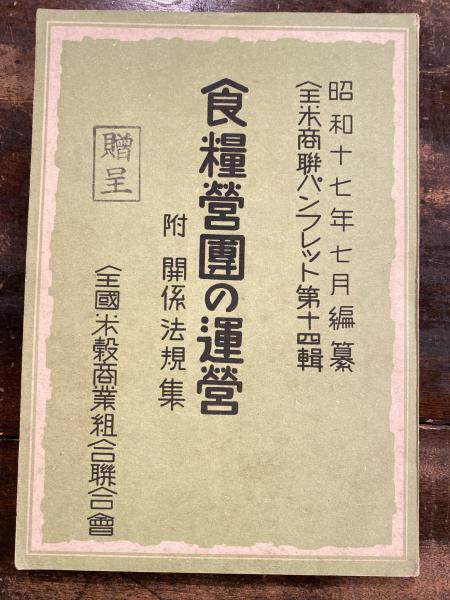 昭和十七年七月編纂
全米商聯パンフレット第十四輯
食糧營團の運營
附 關係法規集
全國米穀商業組合聯合會
贈呈